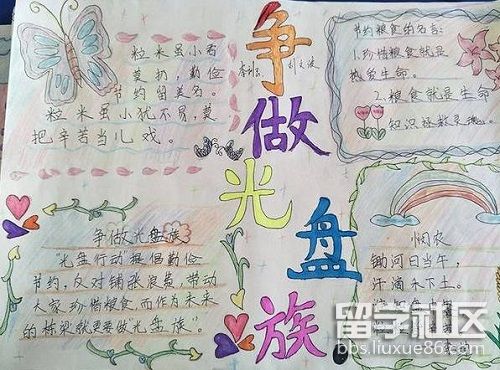 争做光盘族
粒米虽小君
莫扔,勤俭
节约留美名。
粒米虽小犹不易,莫
把辛苦当儿戏。
节约粮食的名言:
1.珍惜粮食就是
热爱生命。
2.粮食就是生命
知识拯救灵魂。
争做光盘族
"光盘行动"提倡勤俭
节约,反对铺张浪费,带动
大家珍惜粮食,而作为未来
的栋梁就更要做光盘族"。
悯农
锄禾日当午,
汗滴禾下土。
留学社区
bbs.liuxue86.com